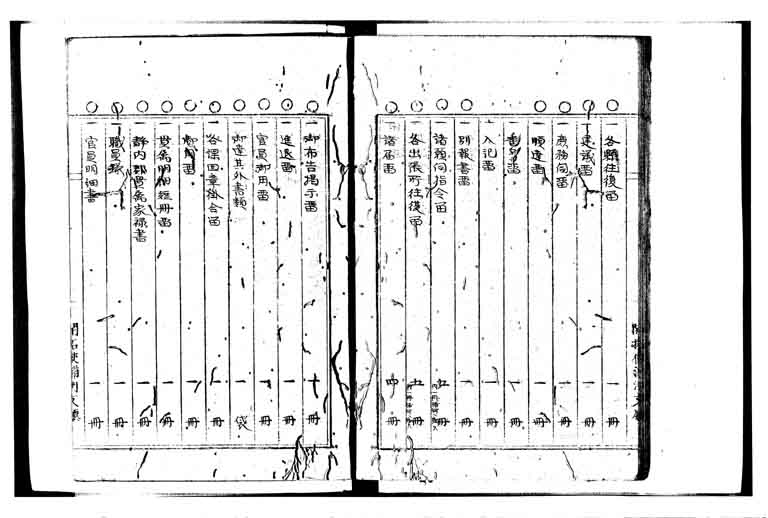 一 各縣往復留 一 冊
一 建議留 一 冊
一 庶務伺留 一 冊
一 順達留 一 冊
一 冊
一 入記留 一 冊
一 別報書留 一 冊
一 諸願伺指令留 五 冊
一 各出張所往復留 五 冊
一 諸届留 四 冊
一 御布告掲示留 十 冊
一 進退留 一 冊
一 官員御用留 一 冊
一 御達其外書類 一 袋
一 各課回章掛合留 一 冊
一 御用留 一 冊
一 貫属明細短冊留 一 冊
一 静内郡貫属家禄書 一 冊
一 職員録 一 冊
一 官員明細書 一 冊